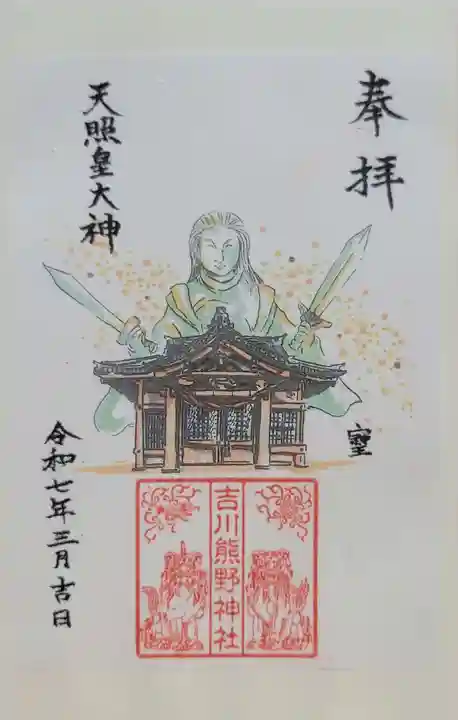 奉拝
天照皇大神
令和七年三月吉日
吉川熊野神社